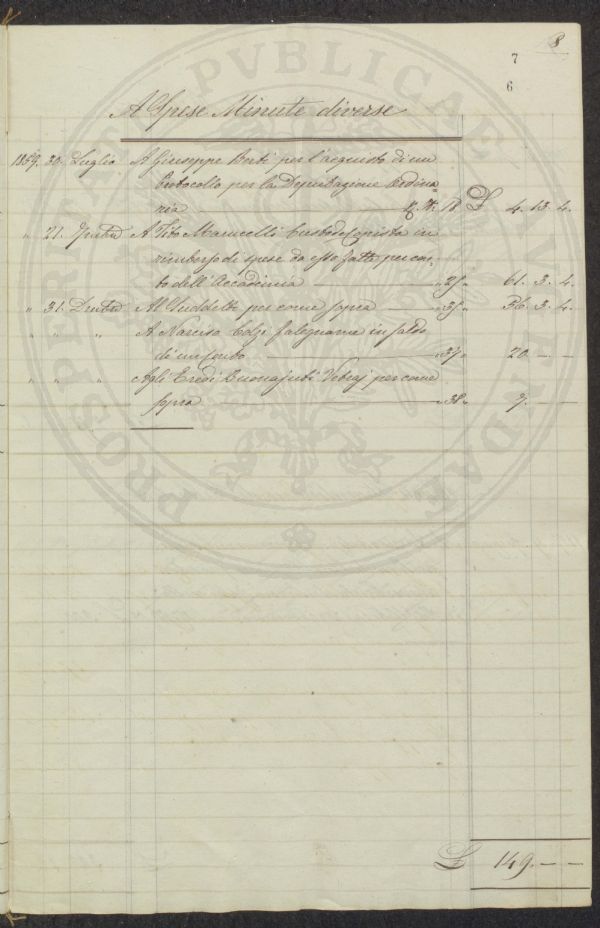 8
7
6
A Spese Minute diverse
1859. 29. Luglio A Giuseppe Berti per l'acquisto di un
Protocollo per la Deputazione Ordina-
ria N. 18 £ 4. 13. 4.
" 21. A Tito Marucelli Custode Copista in
rimborso di spese da esso fatte per con-
to dell'Accademia 61. 3. 4.
" 31. Al Suddetto per come sopra 56. 3. 4.
" " " A Narciso falegname in saldo
di un Conto 20. — —
" " " Agli Eredi Buonajuti per come
sopra 7. — —
£ 149. — —
PROSPERITATI PVBLICAE AVGENDAE